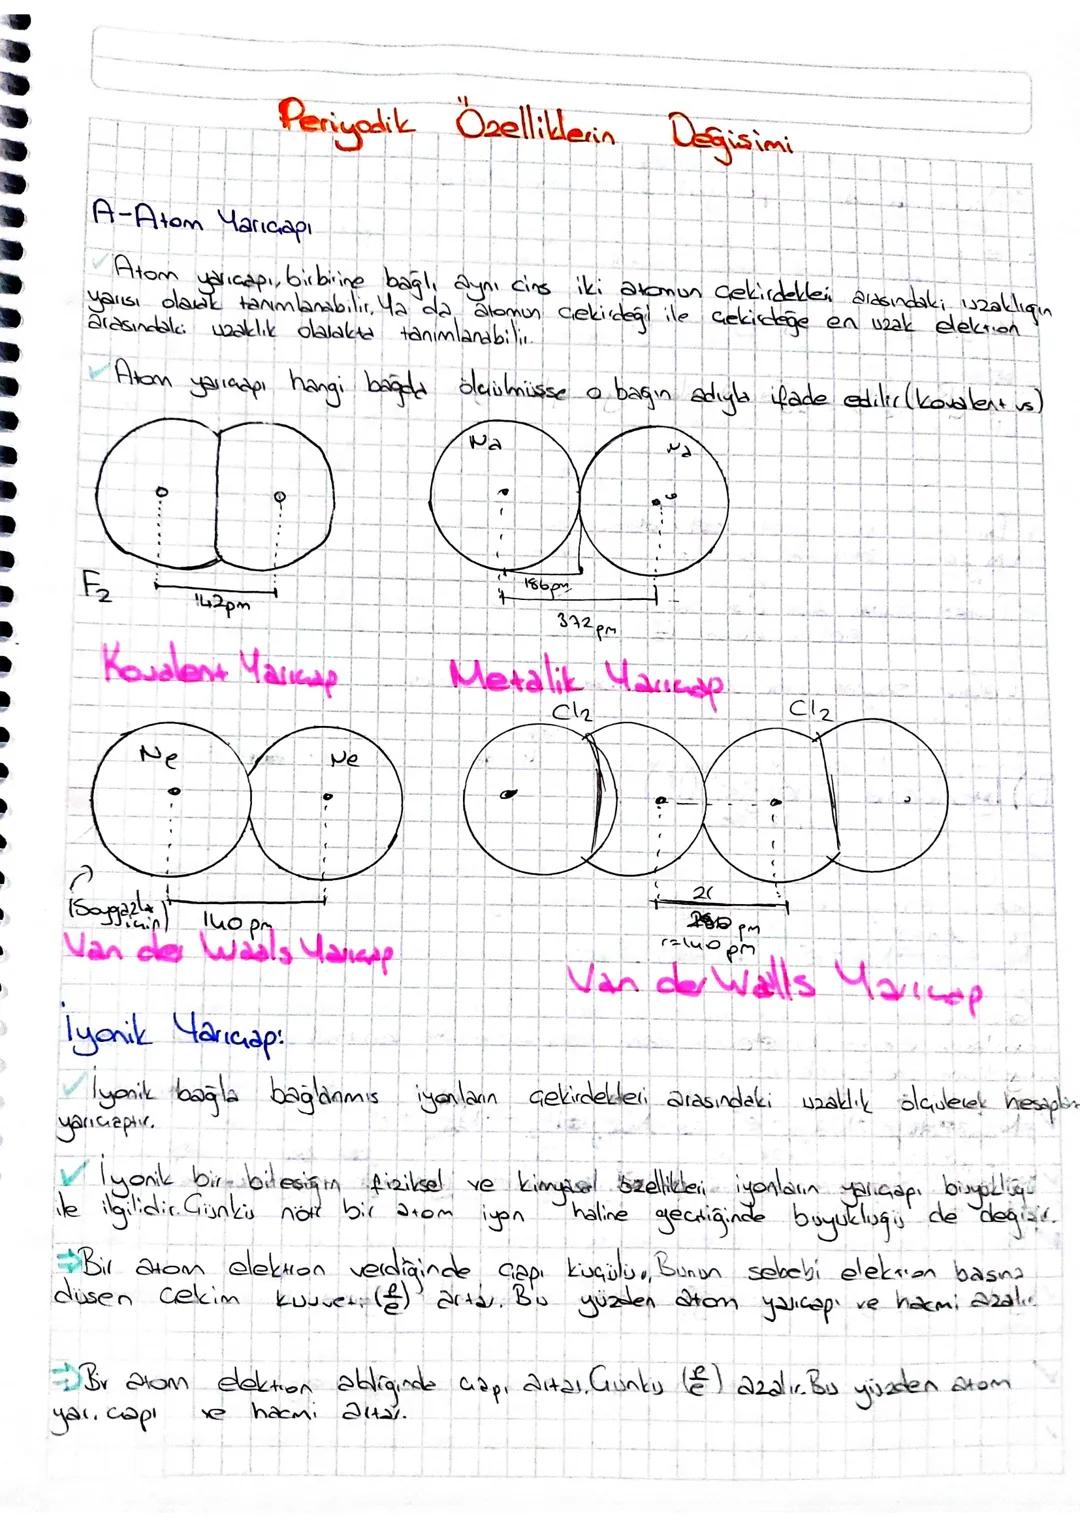 Periyodik Özelliklerin Değişimi
A-Atom Yarıçapı
Atom yarıçapı, birbirine bağlı aynı cins iki atomun çekirdekleri arasındaki uzaklığın
yarısı olarak tanımlanabilir. Ya da atomun çekirdeği ile çekirdeğe en uzak elektron
arasındaki uzaklık olarakta tanımlanabilir.
Atom yarıçapı hangi bağda ölçülmüşse o bağın adıyla ifade edilir (kovalent vs)
Na Na
F2
142pm
186pm
372pm
Kovalent Yarıçap
Metalik Yarıçap
Cl2 Cl2
Ne Ne
(Soygazlar için)
140 pm
2r
280 pm
r=140 pm
Van der Waals Yarıçap
Van der Walls Yarıçap
İyonik Yarıçap:
İyonik bağla bağlanmış iyonların çekirdekleri arasındaki uzaklık ölçülerek
yarıçaptır.
İyonik bir bileşiğin fiziksel ve kimyasal özellikleri iyonların yarıçapı büyüklüğü
ile ilgilidir. Çünkü nötr bir atom iyon haline geçtiğinde büyüklüğü de değişir.
Bir atom elektron verdiğinde çapı küçülür. Bunun sebebi elektron başına
düşen çekim kuvveti (p/e) artar. Bu yüzden atom yarıçapı ve hacmi azalır.
Bir atom elektron aldığında çapı artar. Çünkü (p/e) azalır. Bu yüzden atom
yarı. çapı ve hacmi artar.